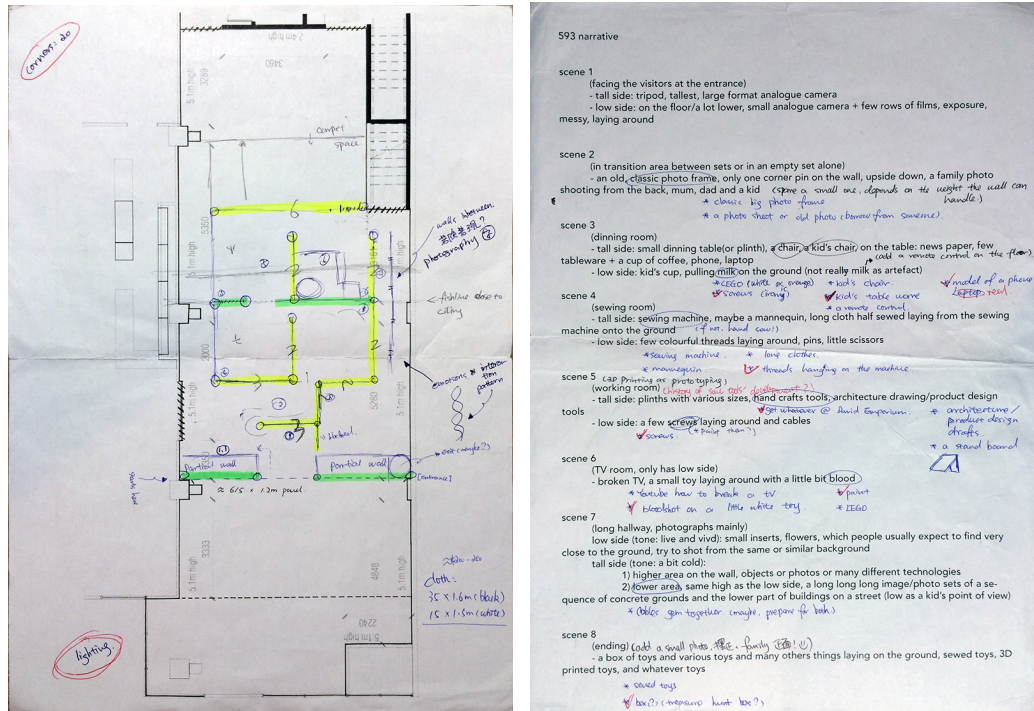 corners: 20
2.4m high
3460
5.1m high
3289
carpet
space
5350
5.1m high
6
walls between
photography
fishline close to
3000
5.1m high
3
2
5280
emotions
pattern
3
Partial wall
Partial wall
[entrance]
≈ 615 x 1.2m panel.
5.1m high
3333
4848
5.1m high
cloth:
35 x 1.6m (black)
15 x 1.5m (white)
2240
5.1m high
lighting
593 narrative
scene 1
(facing the visitors at the entrance)
- tall side: tripod, tallest, large format analogue camera
- low side: on the floor/a lot lower, small analogue camera + few rows of films, exposure,
messy, laying around
scene 2
(in transition area between sets or in an empty set alone)
- an old, classic photo frame, only one corner pin on the wall, upside down, a family photo
shooting from the back, mum, dad and a kid (spare a small one, depends on the weight the wall can
handle.)
* classic big photo frame
* a photo shoot or old photo (borrow from someone).
scene 3
(dinning room)
- tall side: small dinning table(or plinth), a chair, a kid's chair, on the table: news paper, few
tableware + a cup of coffee, phone, laptop
(add a remote control on the floor)
- low side: kid's cup, pulling milk on the ground (not really milk as artefact)
* LEGO (white or orange)
* kid's chair.
* model of a phone
* screws (irony)
* kid's table ware
laptop real
* a remote control.
scene 4
(sewing room)
- tall side: sewing machine, maybe a mannequin, long cloth half sewed laying from the sewing
machine onto the ground (if not, hand saw!)
- low side: few colourful threads laying around, pins, little scissors
* sewing machine.
* long clothes.
* mannequin
* threads hanging on the machine
scene 5
cap printing as prototyping)
(working room)
- tall side: plinths with various sizes, hand crafts tools, architecture drawing/product design
tools
* get whatever @ Emporium.
* architecture/
product design
drafts.
- low side: a few screws laying around and cables
* screws.
(* paint them?)
* a stand board
scene 6
(TV room, only has low side)
- broken TV, a small toy laying around with a little bit blood
* Youtube how to break a tv
* paint
* bloodshot on a little white toy.
* LEGO
scene 7
(long hallway, photographs mainly)
low side (tone: live and vivd): small inserts, flowers, which people usually expect to find very
close to the ground, try to shot from the same or similar background
tall side (tone: a bit cold):
1) higher area on the wall, objects or photos or many different technologies
2) lower area, same high as the low side, a long long long image/photo sets of a se-
quence of concrete grounds and the lower part of buildings on a street (low as a kid's point of view)
together (maybe, prepare for both)
scene 8
(ending) (add a small photo, family 正面!
- a box of toys and various toys and many others things laying on the ground, sewed toys, 3D
printed toys, and whatever toys
* sewed toys
* box(?) (treasure hunt box?)